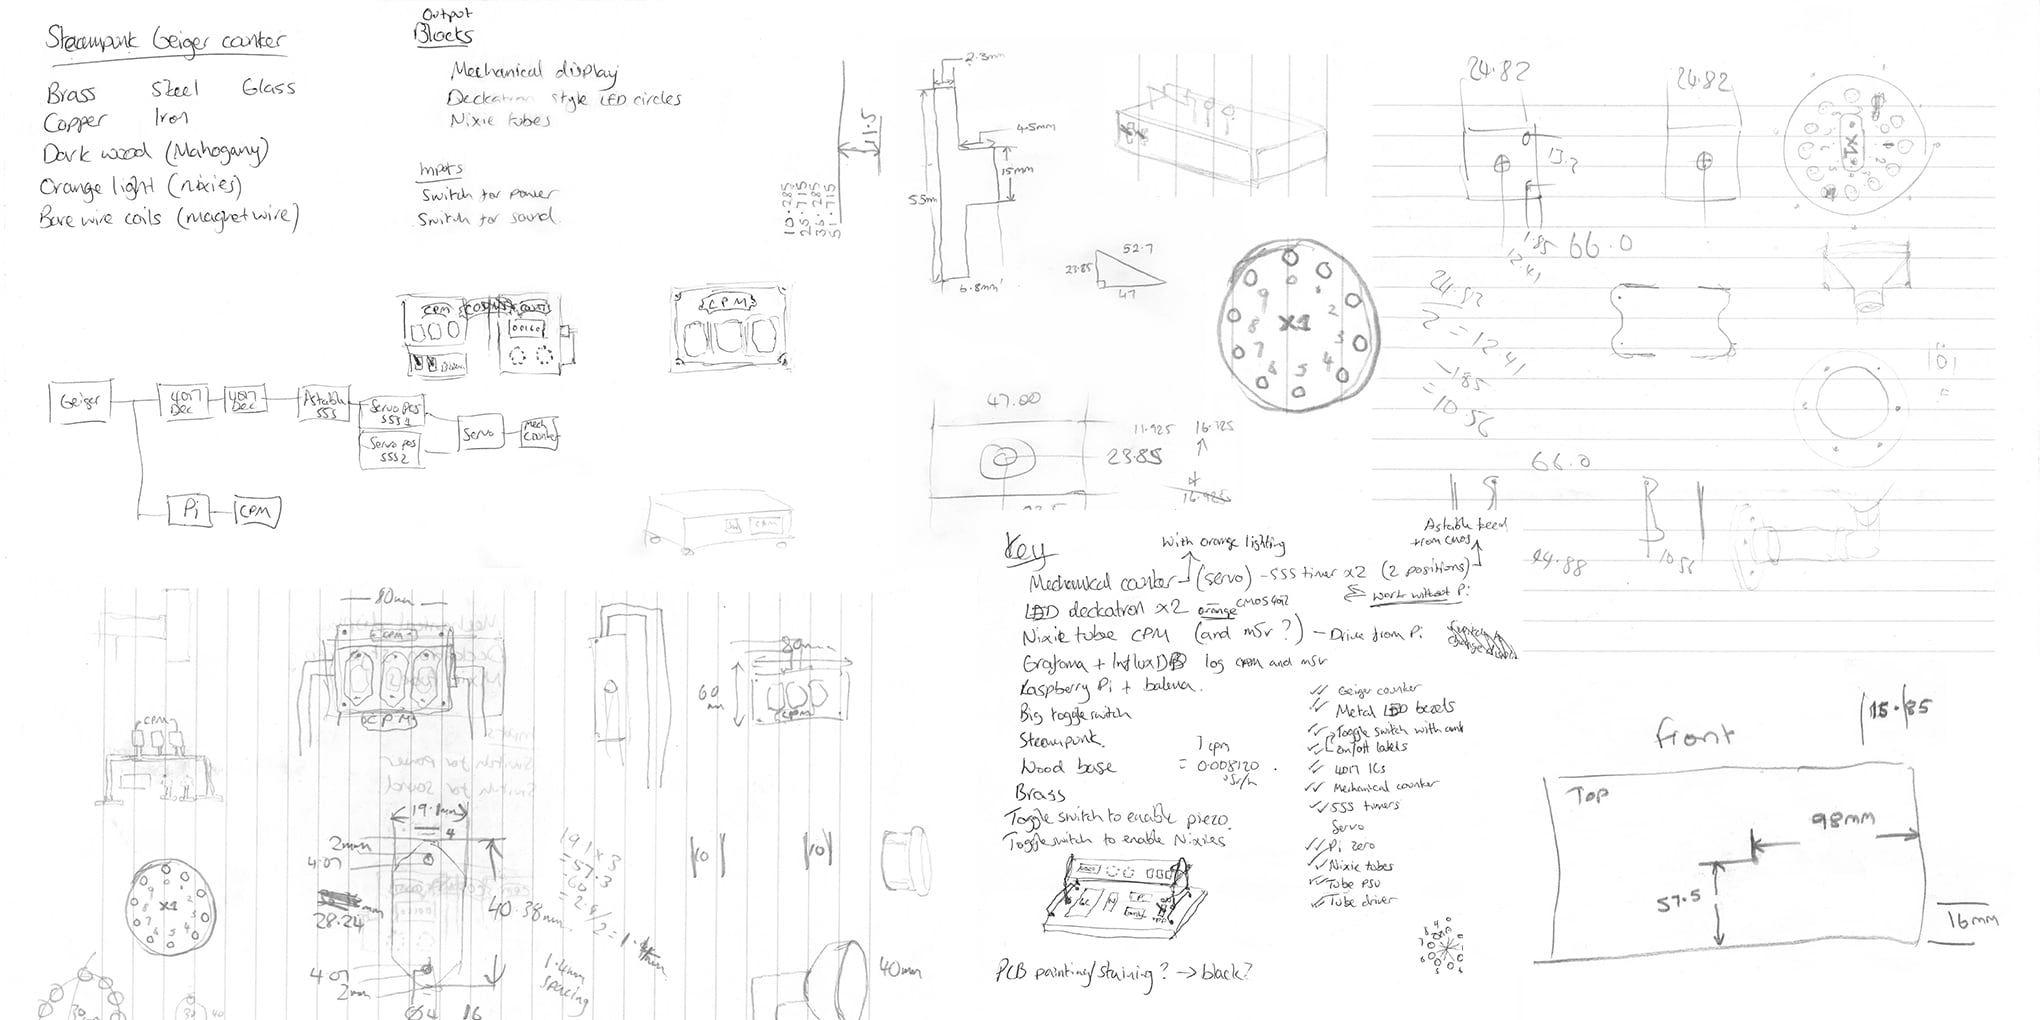 Steampunk Geiger counter
Brass Steel Glass
Copper Iron
Dark wood (Mahogany)
Orange light (nixies)
Bare wire coils (magnet wire)
Output
Blocks
Mechanical display
Deckatron style LED circles
Nixie tubes
Inputs
Switch for power
Switch for sound
11.5
10.285
25.715
36.285
51.715
2.3mm
4.5mm
15mm
55mm
6.8mm
52.7
23.85
47
24.82
24.82
13.2
1.85
12.41
66.0
X1
24.82
2 = 12.41
-1.85
= 10.56
X1
0
1
2
3
4
5
6
7
8
9
CPM
CPM
00160
Geiger
4017
Dec
4017
Dec
Astable
555
Servo pos
555 1
Servo pos
555 2
Servo
Mech
Counter
Pi
CPM
CPM
47.00
11.925 16.925
23.85
16.925
66.0
10.56
Key
With orange lighting
Astable feed
from CMOS
Mechanical counter (servo) - 555 timer x2 (2 positions)
LED deckatron x2 orange CMOS 4017
Work without Pi
Nixie tube CPM (and mSv?) - Drive from Pi
Grafana + InfluxDB log cpm and msv
Raspberry Pi + balena.
Big toggle switch
Steampunk.
Wood base
Brass
Toggle switch to enable piezo.
Toggle switch to enable Nixies
1 cpm
= 0.008120
uSv/h
Geiger counter
Metal LED bezels
Toggle switch with
on/off labels
4017 ICs
Mechanical counter
555 timers
Servo
Pi zero
Nixie tubes
Tube PSU
Tube driver
PCB painting/staining? → black?
80mm
CPM
CPM
80mm
60
mm
CPM
CPM
19.1mm
4
2mm
4.07
28.24 mm
40.38mm
4.07
2mm
Ø4
16
19.1 x 3
= 57.3
1.4mm
spacing
10
10
40mm
X1
0
1
2
3
4
5
6
7
8
9
30mm
30
40
front
15.85
Top
98mm
57.5
16mm